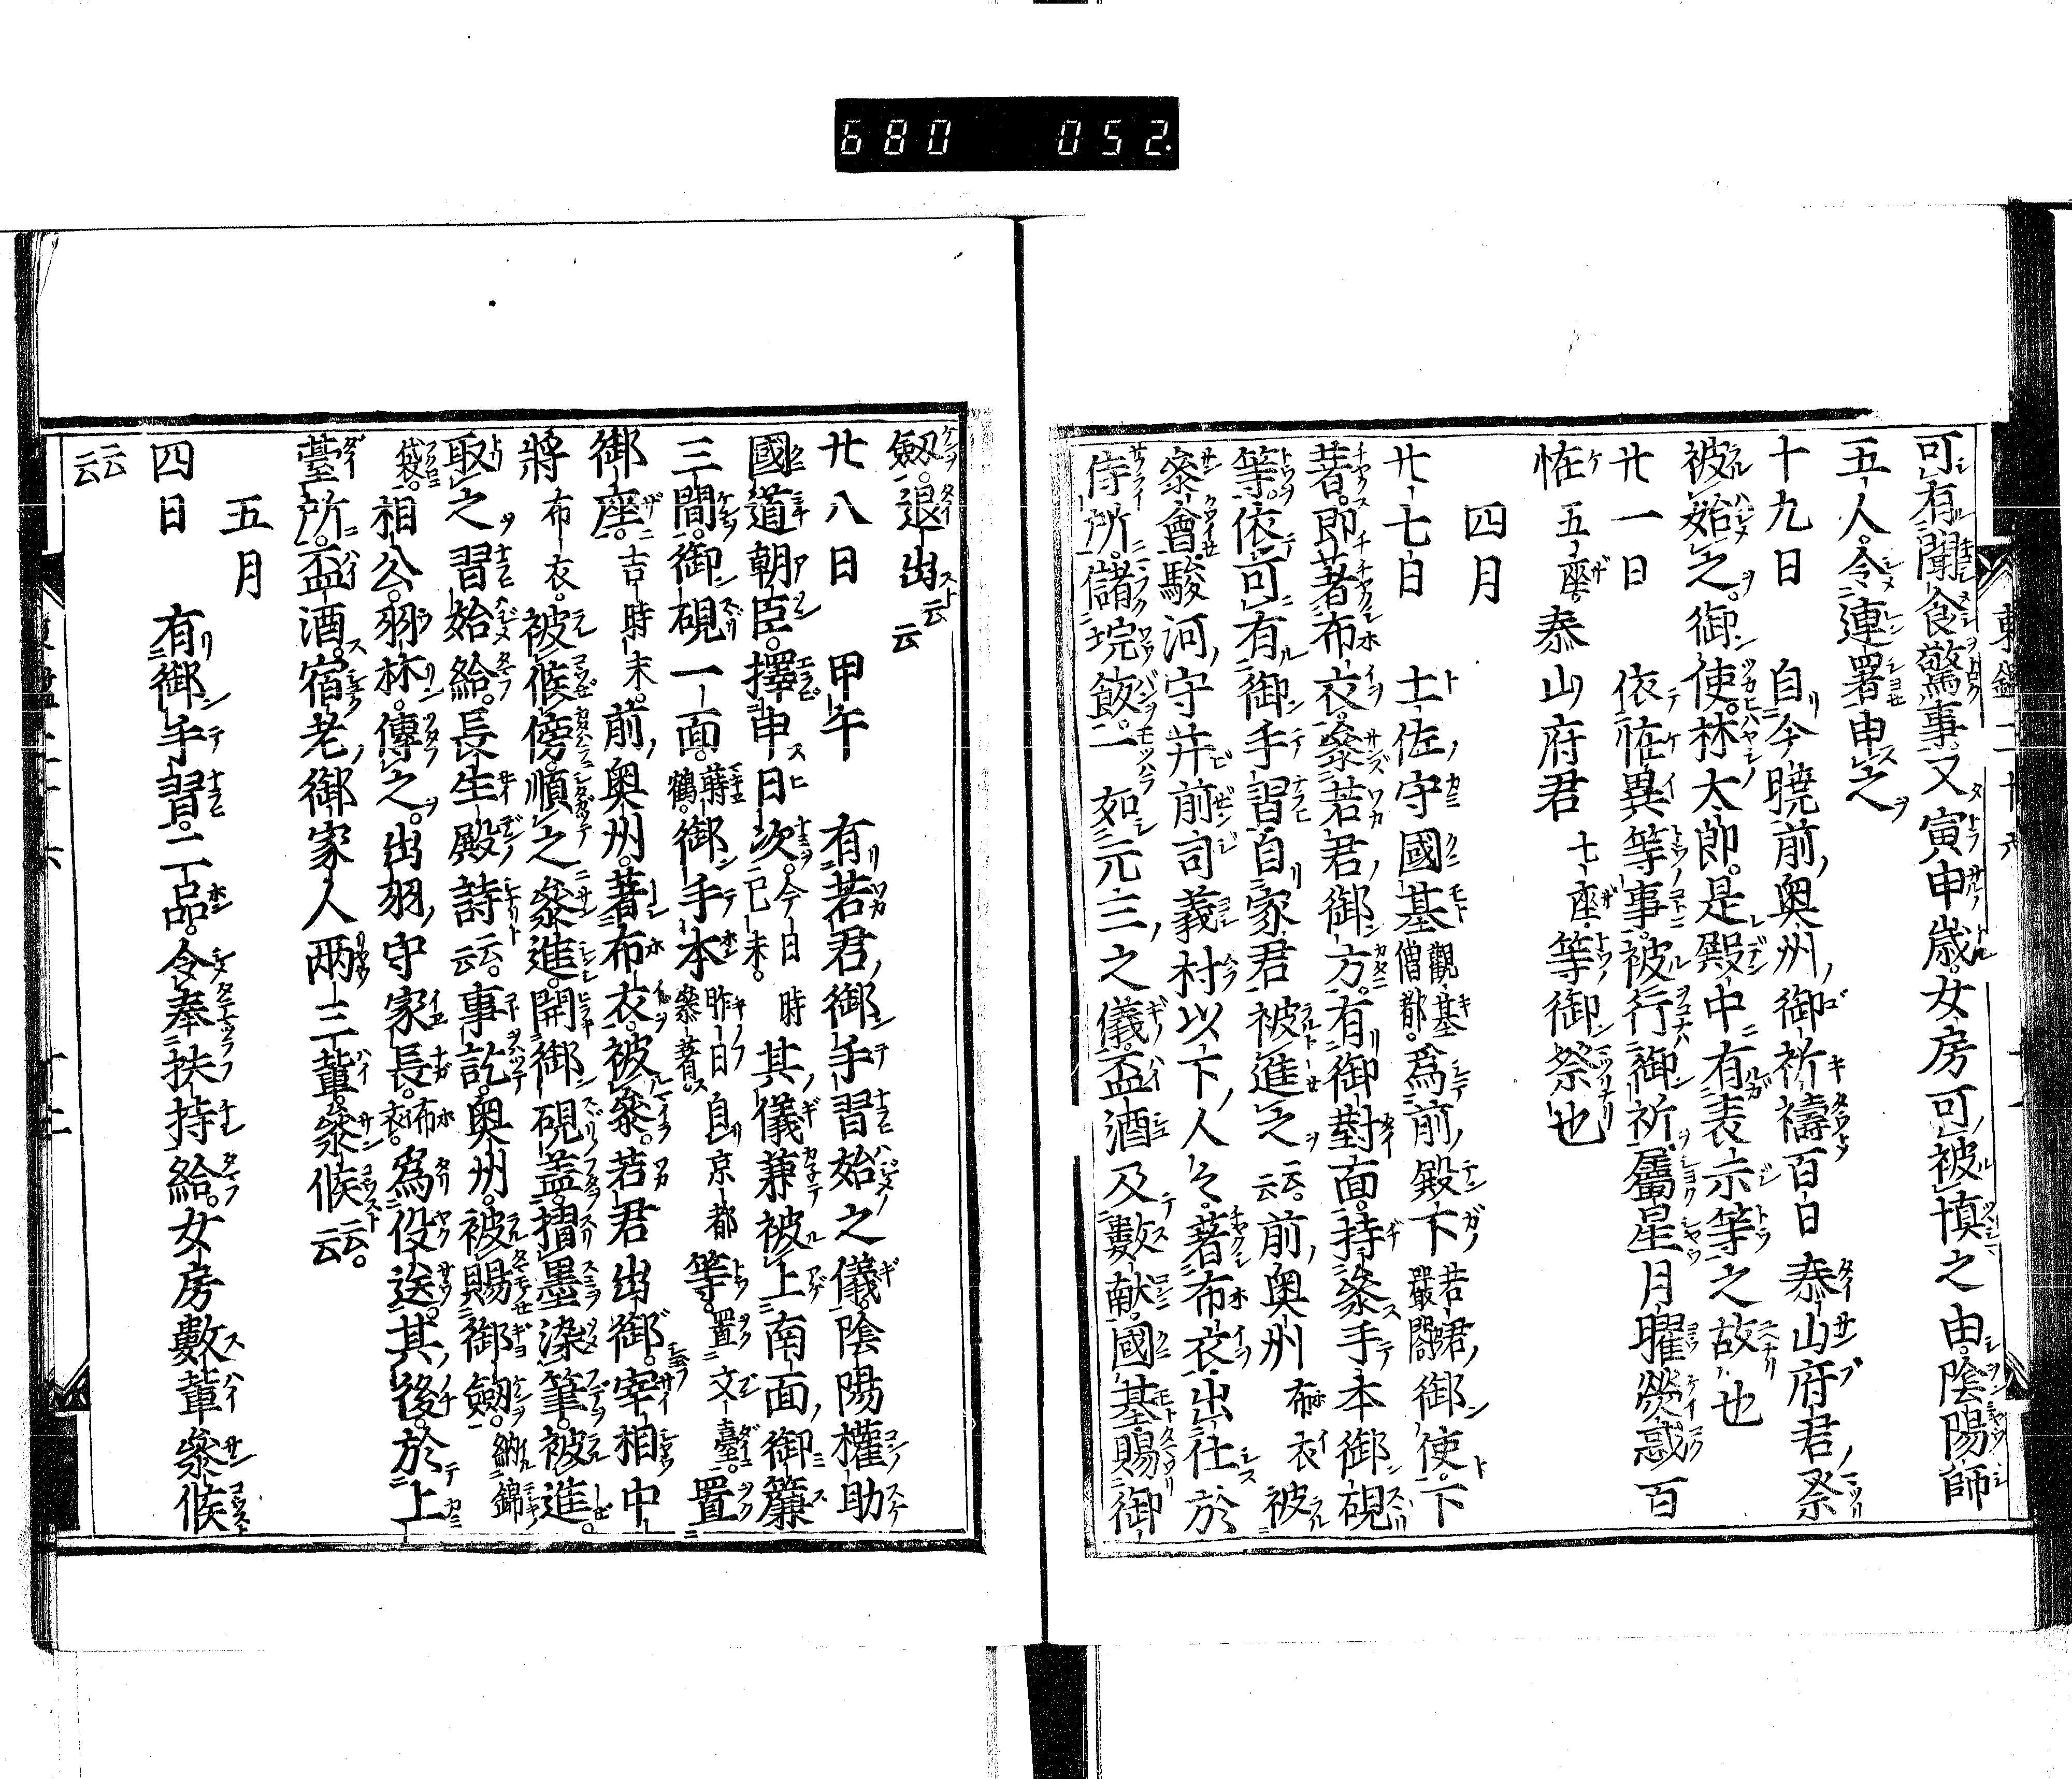 680 052.
可有聞食驚事又寅申歳女房可被慎之由陰陽師
五人令連署申之
十九日 自今曉前奥州御祈禱百日泰山府君祭
被始之御使林太郎是殿中有表示等之故也
廿一日 依恠異等事被行御祈屬星月曜熒惑百
恠五座泰山府君七座等御祭也
四月
廿七日 土佐守國基觀基僧都爲前殿下若君嚴閤御使下
著即著布衣參若君御方有御對面持參手本御硯
等依可有御手習自家君被進之云云前奥州布衣被
參會駿河守并前司義村以下人々著布衣出仕於
侍所儲垸飯一如元三之儀盃酒及數献國基賜御
劔退出云云
廿八日 甲午 有若君御手習始之儀陰陽權助
國道朝臣擇申日次今日時巳未其儀兼被上南面御簾
三間御硯一面蒔鶴御手本昨日自京都參著等置文臺置
御座吉時末前奥州著布衣被參若君出御宰相中
將布衣被候傍順之參進開御硯蓋摺墨染筆被進
取之習始給長生殿詩云云事訖奥州被賜御劔納錦
袋相公羽林傳之出羽守家長布衣爲役送其後於上
臺所盃酒宿老御家人兩三輩參候云云
五月
四日 有御手習二品令奉扶持給女房數輩參候
云云